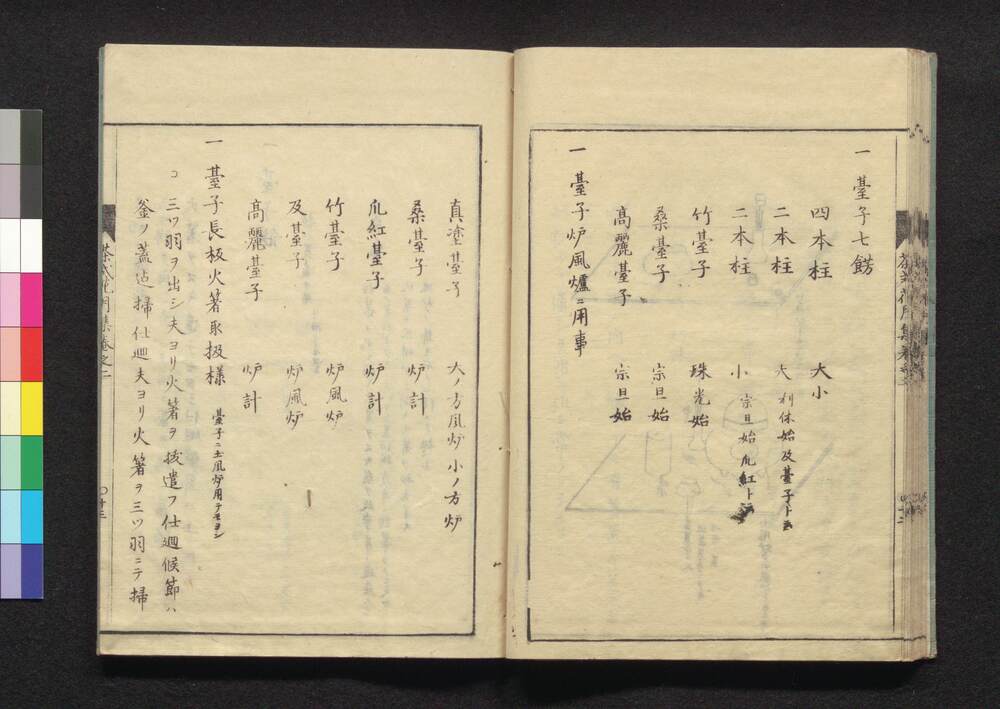 一 臺子七餝
四本柱 大小
二本柱 大 利休始及臺子ト云
二本柱 小 宗旦始爪紅ト云
竹臺子 珠光始
桑臺子 宗旦始
高麗臺子 宗旦始
一 臺子炉風爐ニ用事
真塗臺子 大ノ方風炉小ノ方炉
桑臺子 炉計
爪紅臺子 炉計
竹臺子 炉風炉
及臺子 炉風炉
高麗臺子 炉計
一 臺子長板火箸取扱様 臺子ニ土風炉用テモヨシ
三ツ羽ヲ出シ夫ヨリ火箸ヲ抜遣フ仕廻候節ハ
釜ノ蓋迠掃仕廻夫ヨリ火箸ヲ三ツ羽ニテ掃